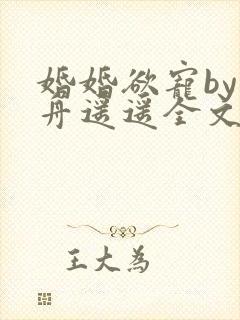 婚婚欲宠by
丹遥遥全文
王大为